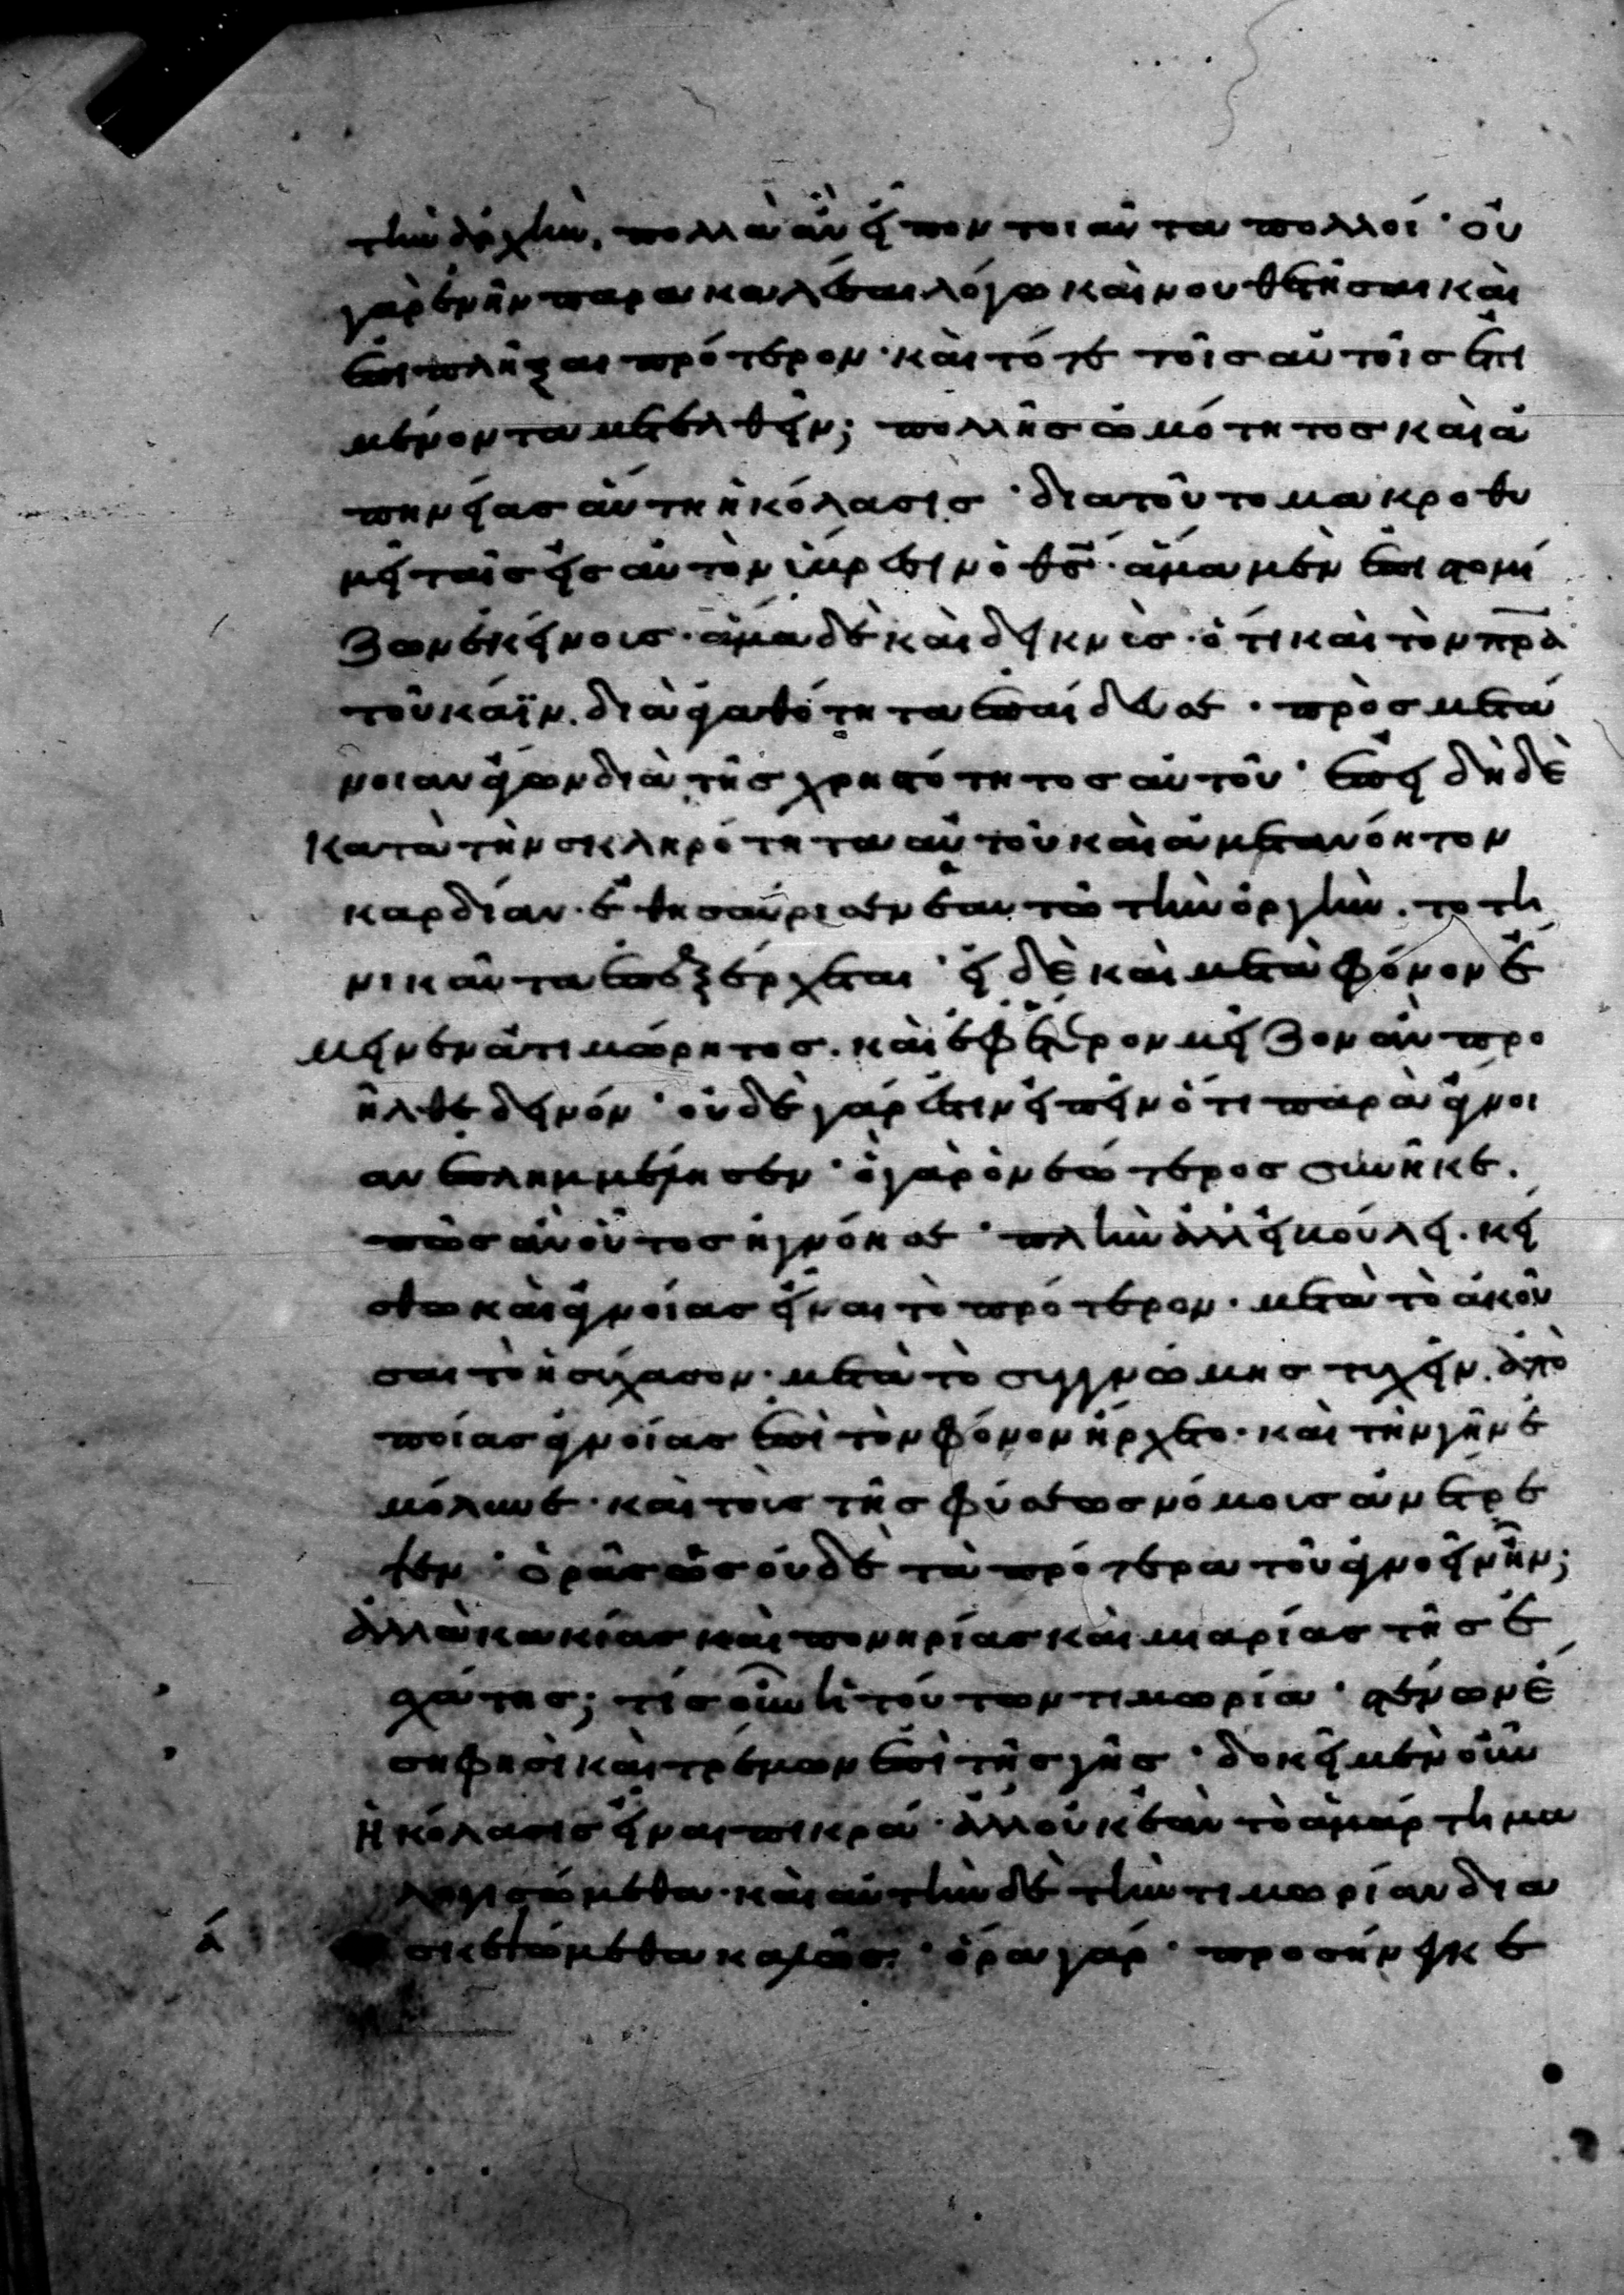 τὴν ἀρχὴν, πολλὰ ἂν εἶπον τοιαῦτα πολλοί· οὐ
γὰρ ἐνῆν παρακαλέσαι λόγω καὶ νουθετῆσαι καὶ
ἐπιπλῆξαι πρότερον· καὶ τότε τοῖς αὐτοῖς ἐπι
μένοντα μετελθεῖν; πολλῆς ὠμότητος καὶ ἀ
πηνείας αὕτη ἡ κόλασις· διατοῦτο μακροθυ
μεῖ ταῖς εἰς αὐτὸν ὕβρεσιν ὁ θς· ἅμα μὲν ἐπιστομί
ζων ἐκείνοις· ἅμα δὲ καὶ δεικνὺς· ὅτι καὶ τὸν πρα
τοῦ κάϊν. δι ἀγαθότητα ἐπαίδευσε· πρὸς μετά
νοιαν ἄγων διὰ τῆς χρηστότητος αὐτοῦ· ἐπεὶ δὴ δὲ
κατὰ τὴν σκληρότητα αὐτοῦ καὶ ἀμετανόητον
καρδίαν· ἐθησαύρισεν ἑαυτῶ τὴν ὀργὴν. τοτη
νικαῦτα ἐπεξέρχεται· εἰ δὲ καὶ μετὰ φόνον ἔ
μεινεν ἀτιμώρητος. καὶ ἐφ ἕτερον μεῖζον ἂν προ
ῆλθε δεινόν· οὐδὲ γάρ ἐστιν εἰπεῖν ὅτι παρὰ ἄγνοι
αν ἐπλημμέλησεν· ὁ γὰρ ὁ νεώτερος συνῆκε.
πῶς ἂν οὗτος ἠγνόησε· πλὴν ἀλλ εἰ βούλει. κεί
σθω καὶ ἀγνοίας εἶναι τὸ πρότερον. μετὰ τὸ ἀκοῦ
σαι τὸ ἡσύχασον· μετὰ τὸ συγγνώμης τυχεῖν. ἀπὸ
ποίας ἀγνοίας ἐπὶ τὸν φόνον ἤρχετο· καὶ τὴν γῆν ἐ
μόλυνε· καὶ τοὺς τῆς φύσεως νόμους ἀνέτρε
πεν· ὁρᾶς ὡς οὐδὲ τὰ πρότερα τοῦ ἀγνοεῖν ἦν;
ἀλλὰ κακίας καὶ πονηρίας καὶ μιαρίας τῆς ἐ
σχάτης; τίς οὖν ἡ τούτων τιμωρία· στένων ἔ
ση φησὶ καὶ τρέμων ἐπὶ τῆς γῆς· δοκεῖ μὲν οὖν
ἡ κόλασις εἶναι πικρά· ἀλλ οὐκ ἐὰν τὸ ἁμάρτημα
λογισώμεθα· καὶ αὐτὴν δὲ τὴν τιμωρίαν δια
σκεψώμεθα καλῶς· ὅρα γάρ· προσήνεγκε